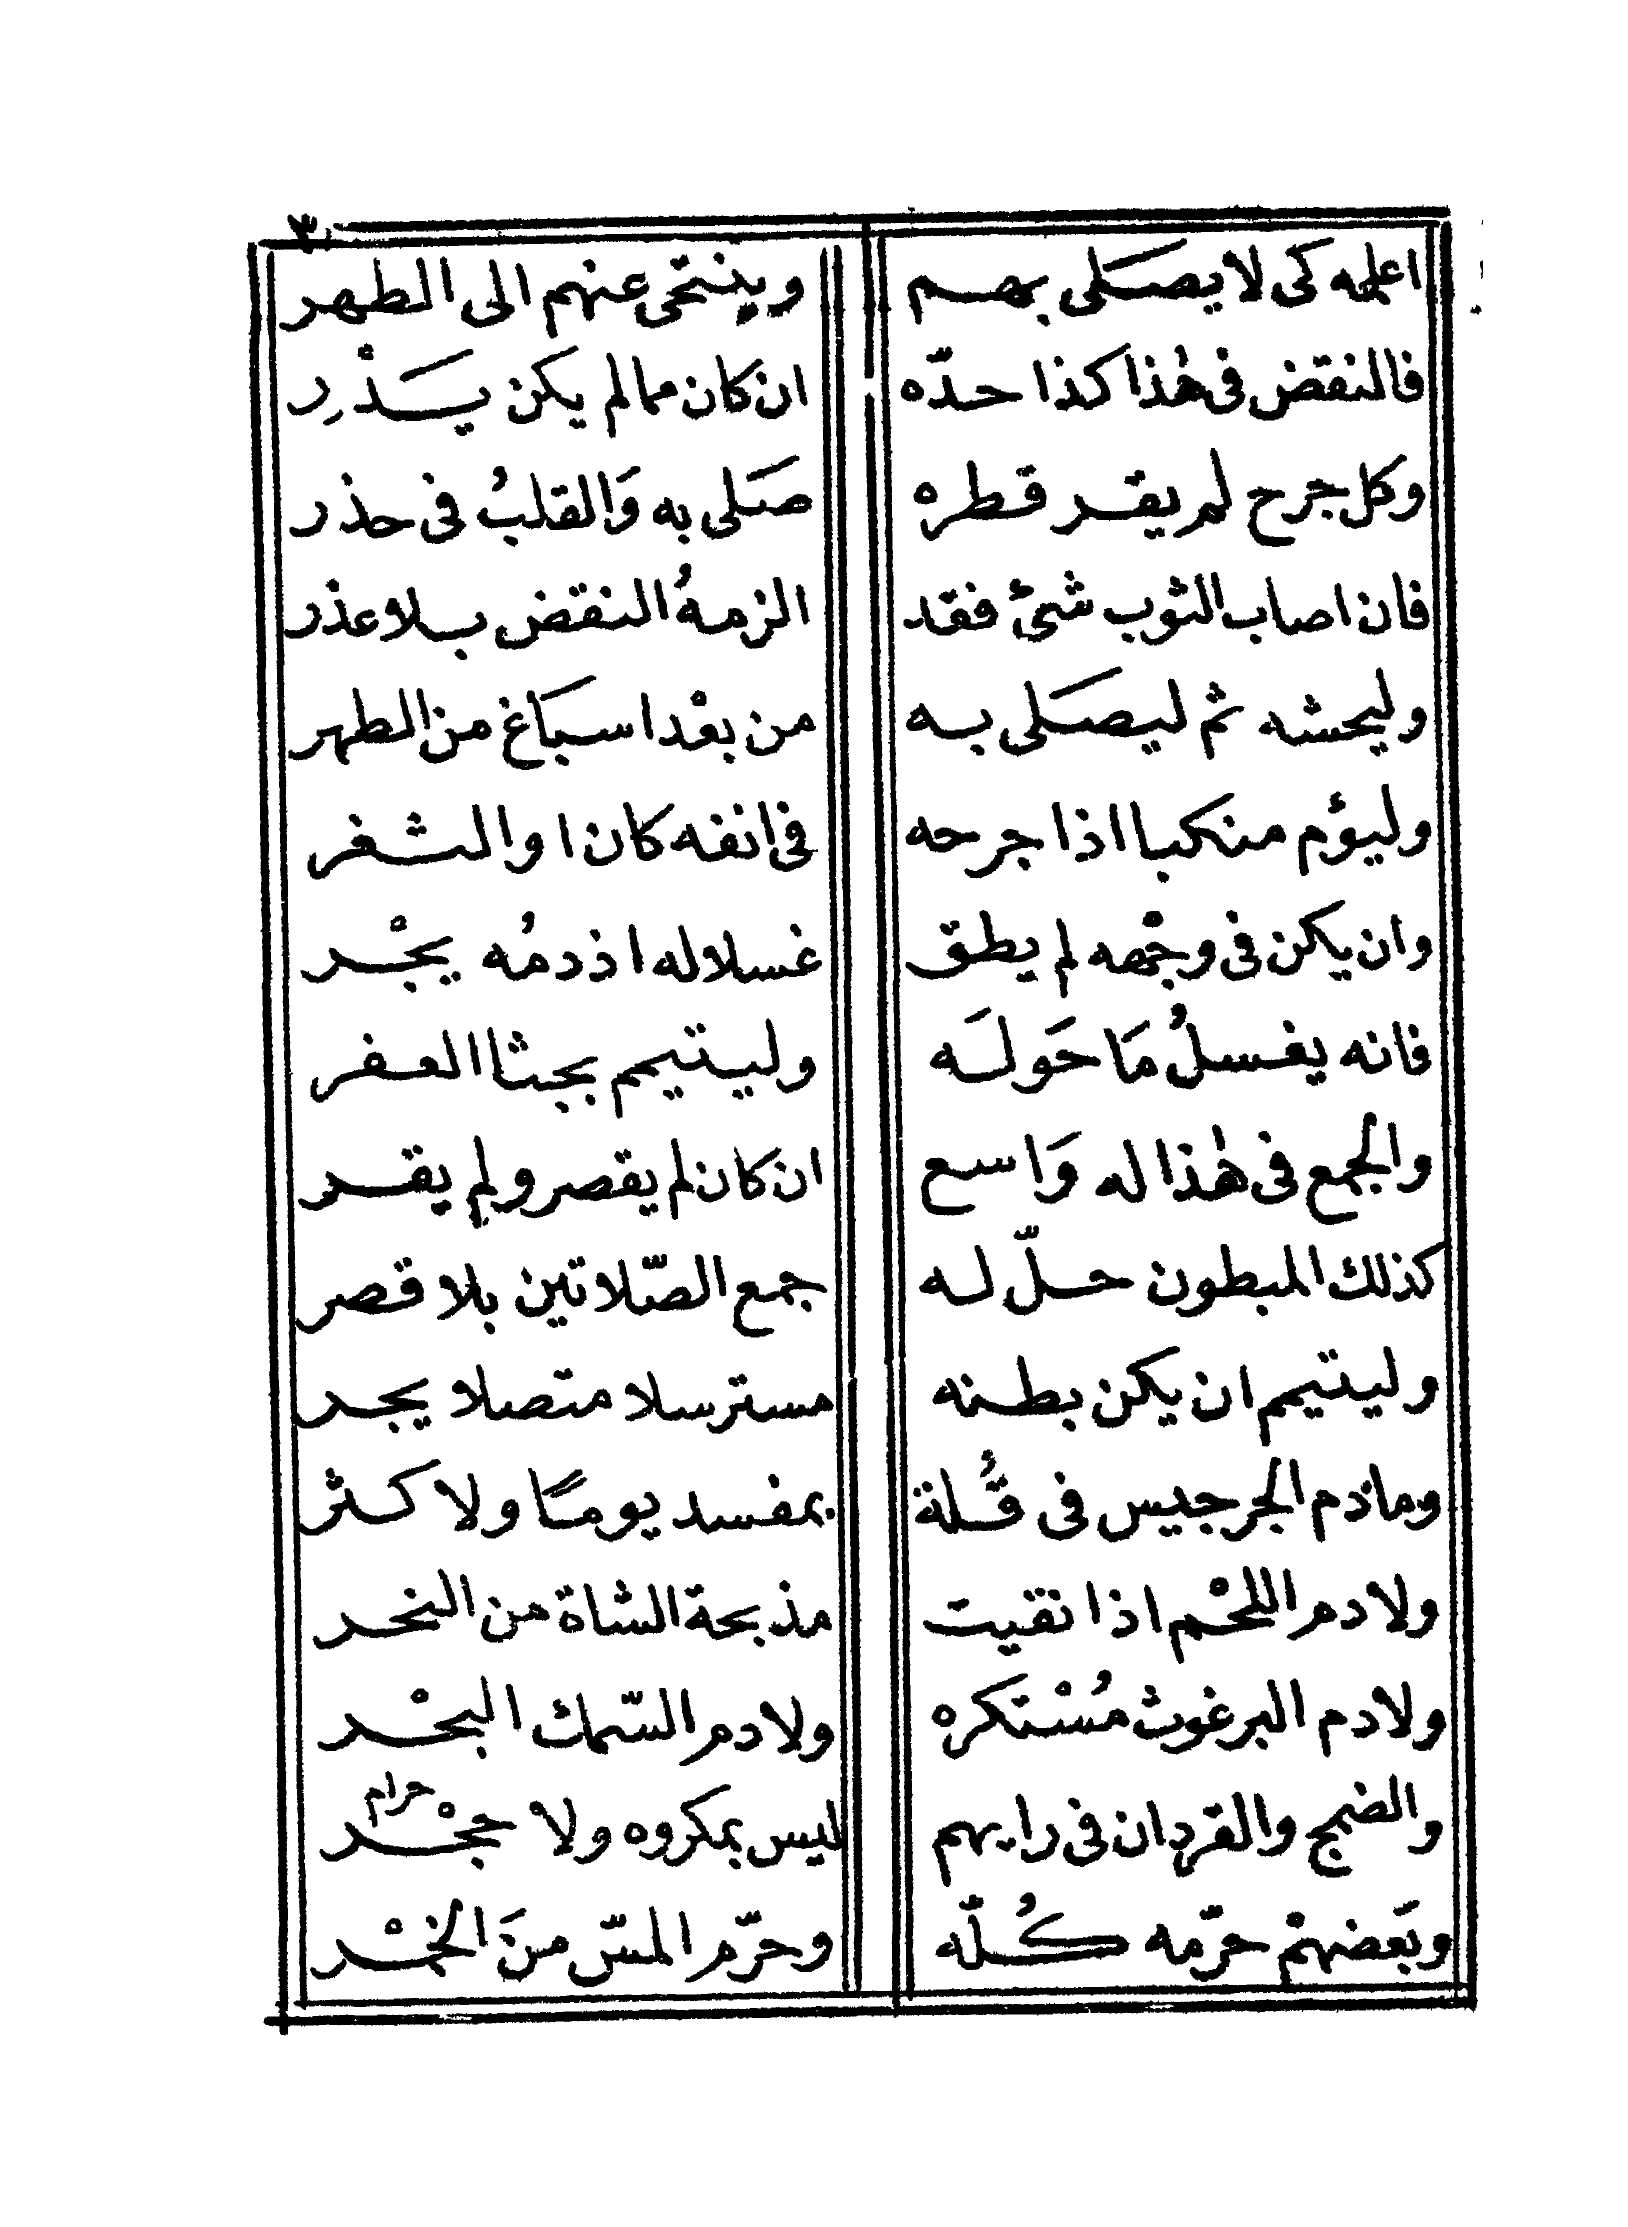 ٣
اعلمه كى لا يصَلى بهم وينتحى عنهم الى الطهر
فالنقض فى هٰذا كذا حدّه ان كان مما لم يكن يَذْر
وكل جرح لم يقر قطره صَلى به وَالقلبُ فى حذر
فان اصاب الثوب شئ فقد الزمهُ النقض بلا عذر
وليحشه ثم ليصَلى به من بعْد اسبَاغ من الطهر
وليؤم منكبا اذا جرحه فى انفه كان ا والشفر
وان يكن فى وجْهه لم يطق غسلا له اذ دمُه يجْر
فانه يغسلُ مَا حَولَه وليتيمم بجثا العفر
والجمع فى هٰذا له وَاسع ان كان لم يقصر ولم يقر
كذلك المبطون حلّ له جمع الصّلاتين بلا قصر
وليتيمم ان يكن بطنه مسترسلا متصلا يجر
وما دم الجرجيس فى قُلة بمفسد يومًا ولا كثر
ولا دم اللحْم اذا نقيت مذبحة الشاة من النحر
ولا دم البرغوث مُسْتكره ولا دم السّمك البحْر
والضمج والقردان فى رايهم ليس بمكروه ولا حجْر
حرام
وبَعضهمْ حرّمه كُلّه وحرّم المسّ منَ الخمْر